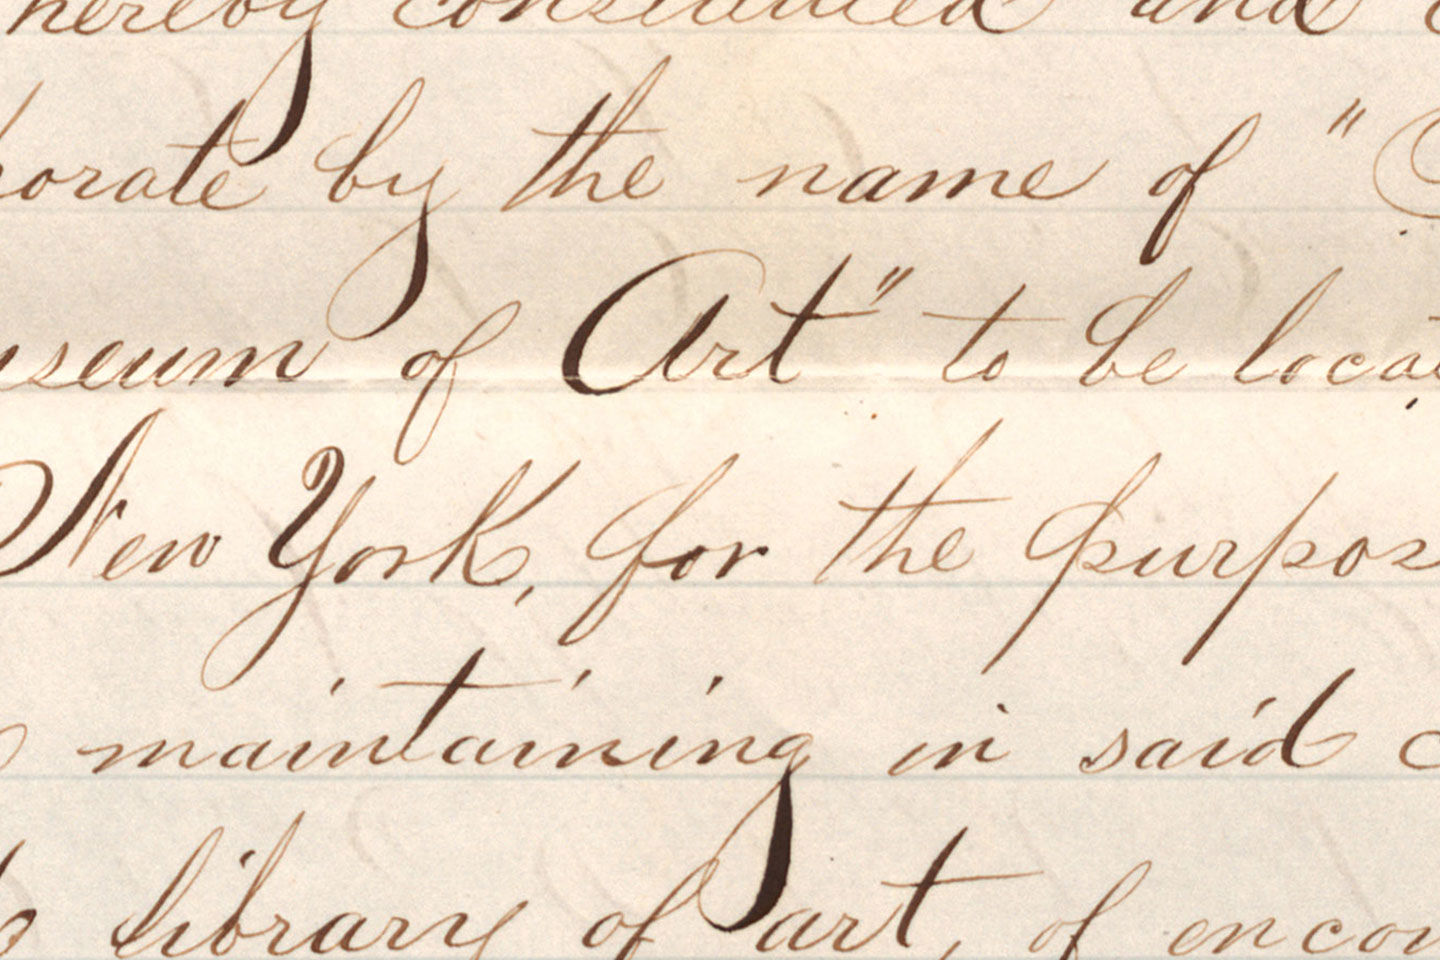 hereby constituted and
porate by the name of "
useum of Art" to be locat
New York, for the purpos
maintaining in said
library of art, of encou